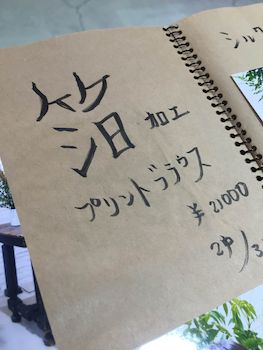 シルク
箔加工
プリントブラウス
¥21000